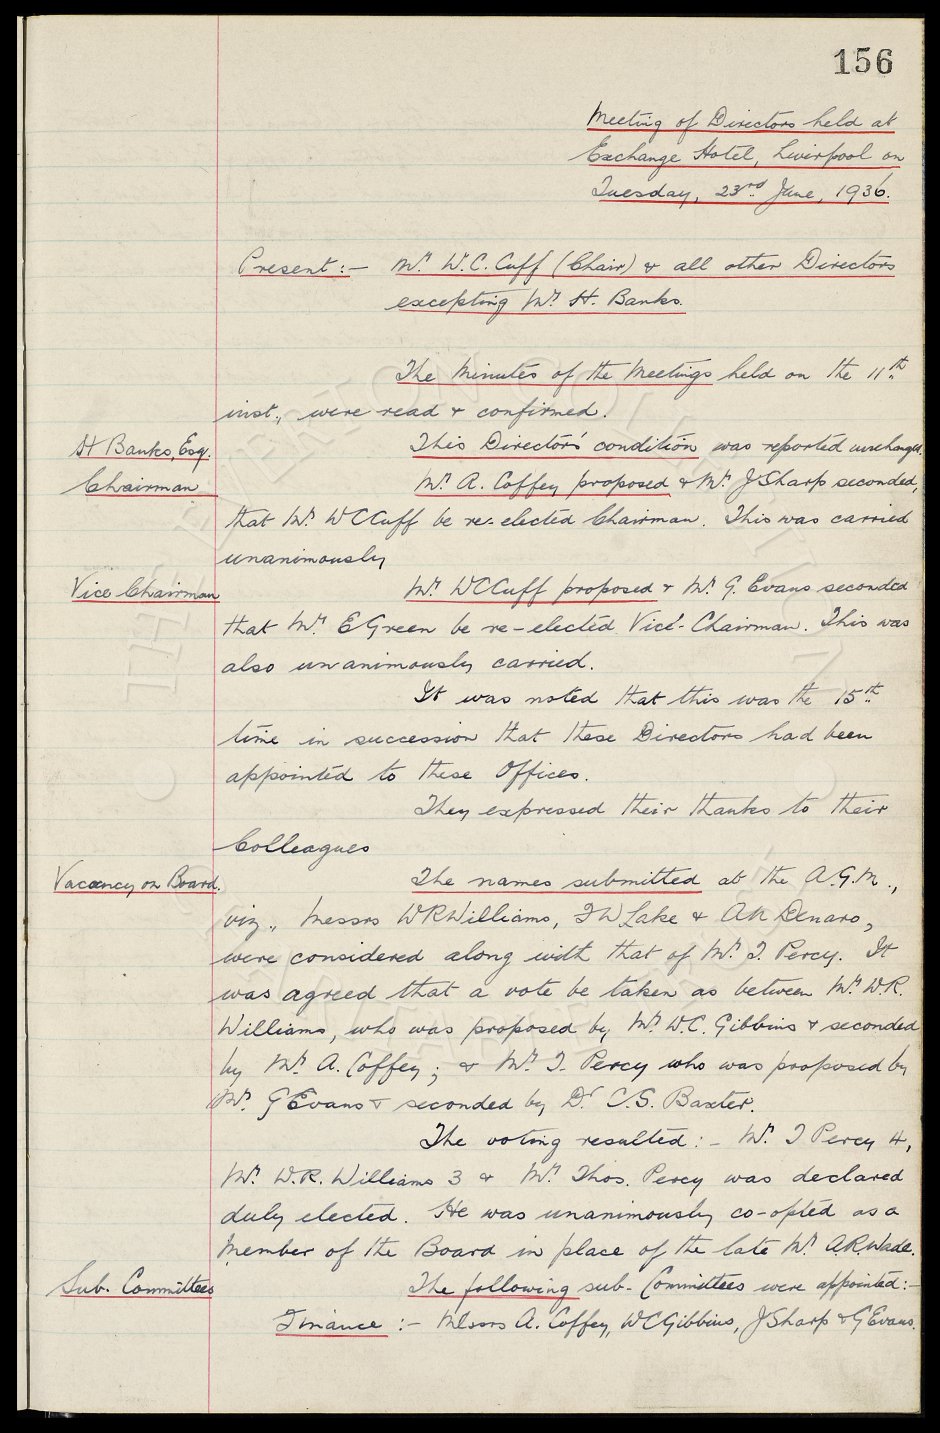 156
Meeting of Directors held at
Exchange Hotel, Liverpool on
Tuesday, 23rd June, 1936.
Present:- Mr. W.C. Cuff (Chair) & all other Directors
excepting Mr. H. Banks.
The Minutes of the Meetings held on the 11th
inst., were read & confirmed.
H Banks, Esq. This Directors' condition was reported unchanged.
Chairman Mr. A. Coffey proposed & Mr. J Sharp seconded,
that Mr. W C Cuff be re-elected Chairman. This was carried
unanimously
Vice Chairman Mr. W C Cuff proposed & Mr. G. Evans seconded
that Mr. E Green be re-elected Vice-Chairman. This was
also unanimously carried.
It was noted that this was the 15th
time in succession that these Directors had been
appointed to these Offices.
They expressed their thanks to their
Colleagues
Vacancy on Board. The names submitted at the A.G.M.,
viz., Messrs W R Williams, F W Lake & A N Denaro,
were considered along with that of Mr. T. Percy. It
was agreed that a vote be taken as between Mr. W.R.
Williams, who was proposed by Mr. W.C. Gibbins & seconded
by Mr. A. Coffey; & Mr. T. Percy who was proposed by
Mr. G Evans & seconded by Dr C.S. Baxter.
The voting resulted:- Mr. T Percy 4,
Mr. W.R. Williams 3 & Mr. Thos. Percy was declared
duly elected. He was unanimously co-opted as a
Member of the Board in place of the late Mr. A.R. Wade.
Sub. Committees The following sub-Committees were appointed:-
Finance:- Messrs A. Coffey, W C Gibbins, J Sharp & G Evans.